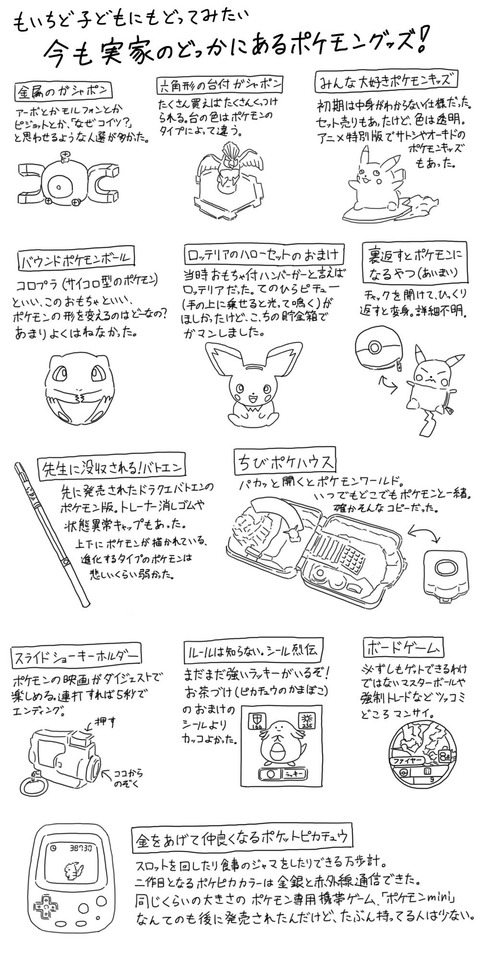 もいちど子どもにもどってみたい
今も実家のどっかにあるポケモングッズ!
金属のガシャポン
アーボとかモルフォンとか
ピジョットとか、「なぜコイツ?」
と思わせるような人選が多かった。
六角形の台付ガシャポン
たくさん買えばたくさんくっつけ
られる。台の色はポケモンの
タイプによって違う。
みんな大好きポケモンキッズ
初期は中身がわからない仕様だった。
セット売りもあったけど、色は透明。
アニメ特別版でサトシやオーキドの
ポケモンキッズ
もあった。
バウンドポケモンボール
コロプラ(サイコロ型のポケモン)
といい、このおもちゃといい、
ポケモンの形を変えるのはどーなの?
あまりよくはねなかった。
ロッテリアのハローセットのおまけ
当時おもちゃ付ハンバーガーと言えば
ロッテリアだった。てのひらピチュー
(手の上に乗せると光って鳴く)が
ほしかったけど、こっちの貯金箱で
ガマンしました。
裏返すとポケモンに
なるやつ(あいまい)
チャックを開けて、ひっくり
返すと変身。詳細不明。
先生に没収される!バトエン
先に発売されたドラクエバトエンの
ポケモン版。トレーナー消しゴムや
状態異常キャップもあった。
上下にポケモンが描かれている、
進化するタイプのポケモンは
悲しいくらい弱かった。
ちびポケハウス
パカッと開くとポケモンワールド。
いつでもどこでもポケモンと一緒。
確かそんなコピーだった。
スライドショーキーホルダー
ポケモンの映画がダイジェストで
楽しめる。連打すれば5秒で
エンディング。
押す
ココから
のぞく
ルールは知らない。シール烈伝
まだまだ強いラッキーがいるぞ!
お茶づけ(ピカチュウのかまぼこ)
のおまけの
シールより
カッコよかった。
ラッキー
ボードゲーム
必ずしもゲットできるわけ
ではないマスターボールや
強制トレードなどツッコミ
どころマンサイ。
ファイヤー
3
38730
金をあげて仲良くなるポケットピカチュウ
スロットを回したり食事のジャマをしたりできる万歩計。
二作目となるポケピカカラーは金銀と赤外線通信できた。
同じくらいの大きさのポケモン専用携帯ゲーム、「ポケモンmini」
なんてのも後に発売されたんだけど、たぶん持ってる人は少ない。